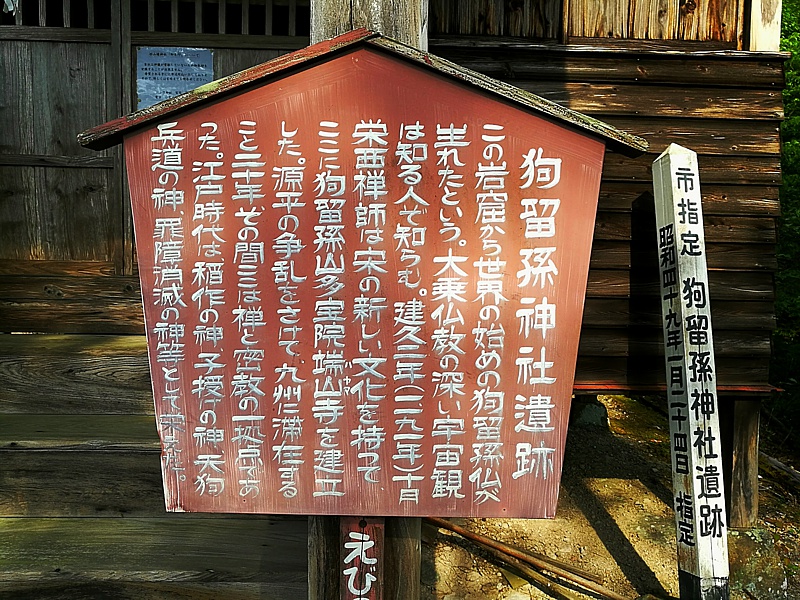 狗留孫神社遺跡
この岩窟から世界の始めの狗留孫仏が
生れたという。大乗仏教の深い宇宙観
は知る人で知らむ。建久二年(一一九一年)十月
栄西禅師は宋の新しい文化を持って、
ここに狗留孫山多宝院端山寺を建立
した。源平の争乱をさけて、九州に滞在する
こと二十年その間ここは禅と密教の一拠点であ
った。江戸時代は稲作の神、子授けの神、天狗
兵道の神、罪障消滅の神等として栄えた。
えび
市指定 狗留孫神社遺跡
昭和四十九年一月二十四日 指定